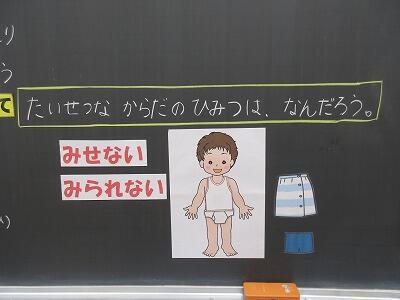 り
う
て
たいせつな からだの ひみつは、なんだろう。
みせない
みられない